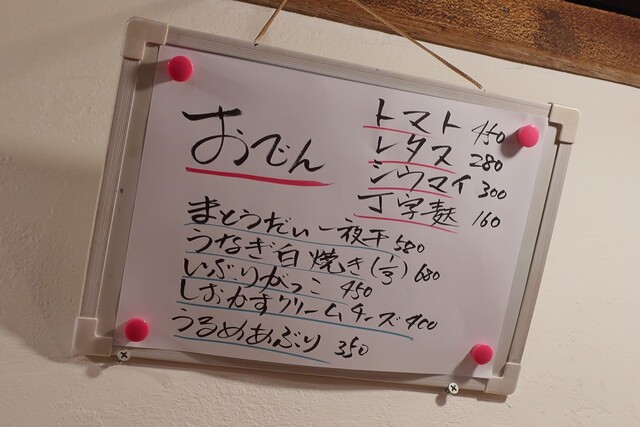 おでん
トマト 450
レタス 280
シウマイ 300
丁字麩 160
まとうだい一夜干 580
うなぎ白焼き(1/3) 680
いぶりがっこ 450
しおかすクリームチーズ 400
うるめあぶり 350